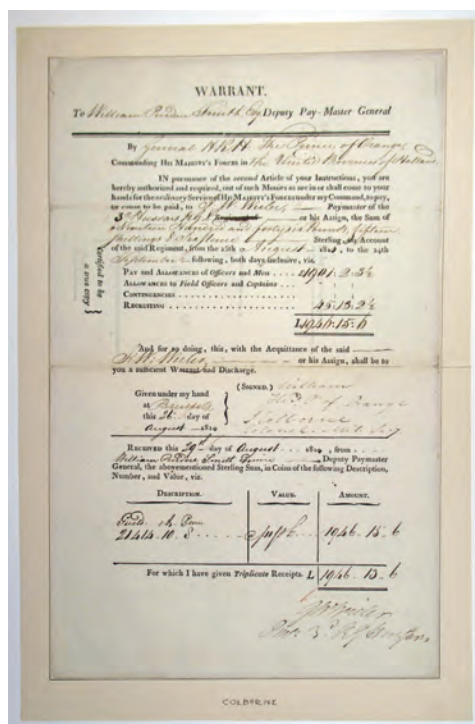 WARRANT.
To William Esq Deputy Pay-Master General
By General H.R.H. The Prince of Orange
Commanding His Majesty's Forces in the United Provinces of Holland
IN pursuance of the second Article of your Instructions, you are
hereby authorized and required, out of such Monies as are in or shall come to your
hands for the ordinary Service of His Majesty's Forces under my Command, to pay,
or cause to be paid, to Paymaster of the
3d Hussars K.G.L. or his Assign, the Sum of
Nineteen Hundred and forty six Pounds, fifteen
Shillings & Sterling, on Account
of the said Regiment, from the 25th August 1814, to the 24th
September following, both days inclusive, viz.
Pay and Allowances of Officers and Men 1901. 2. 3½
Allowances to Field Officers and Captains
Contingencies
Recruiting 45. 13. 2½
£ 1946. 15. 6
And for so doing, this, with the Acquittance of the said
or his Assign, shall be to
you a sufficient Warrant and Discharge.
Certified to be
a true copy
(Signed.) William
Given under my hand
at Brussels
this 26 day of
August 1814
P. of Orange
J Colborne
Received this 29th day of August 1814, from
William Deputy Paymaster
General, the abovementioned Sterling Sum, in Coins of the following Description,
Number, and Value, viz.
Description. Value. Amount.
21414. 10. 8 1946. 15. 6
For which I have given Triplicate Receipts. £ 1946. 15. 6
COLBORNE